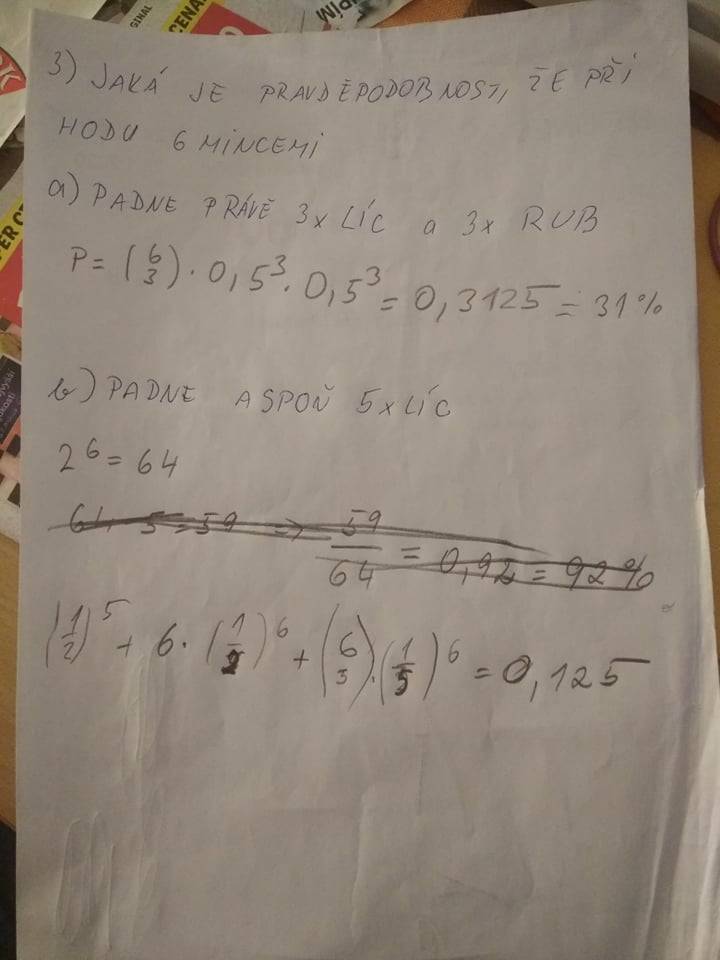 3) JAKÁ JE PRAVDĚPODOBNOST, ŽE PŘI
HODU 6 MINCEMI
a) PADNE PRÁVĚ 3x LÍC a 3x RUB
P = (6 3) · 0,5³ · 0,5³ = 0,3125 = 31%
b) PADNE ASPOŇ 5x LÍC
2⁶ = 64
64 - 5 = 59 => 59/64 = 0,92 = 92%
(1/2)⁵ + 6 · (1/2)⁶ + (6 5) · (1/5)⁶ = 0,125